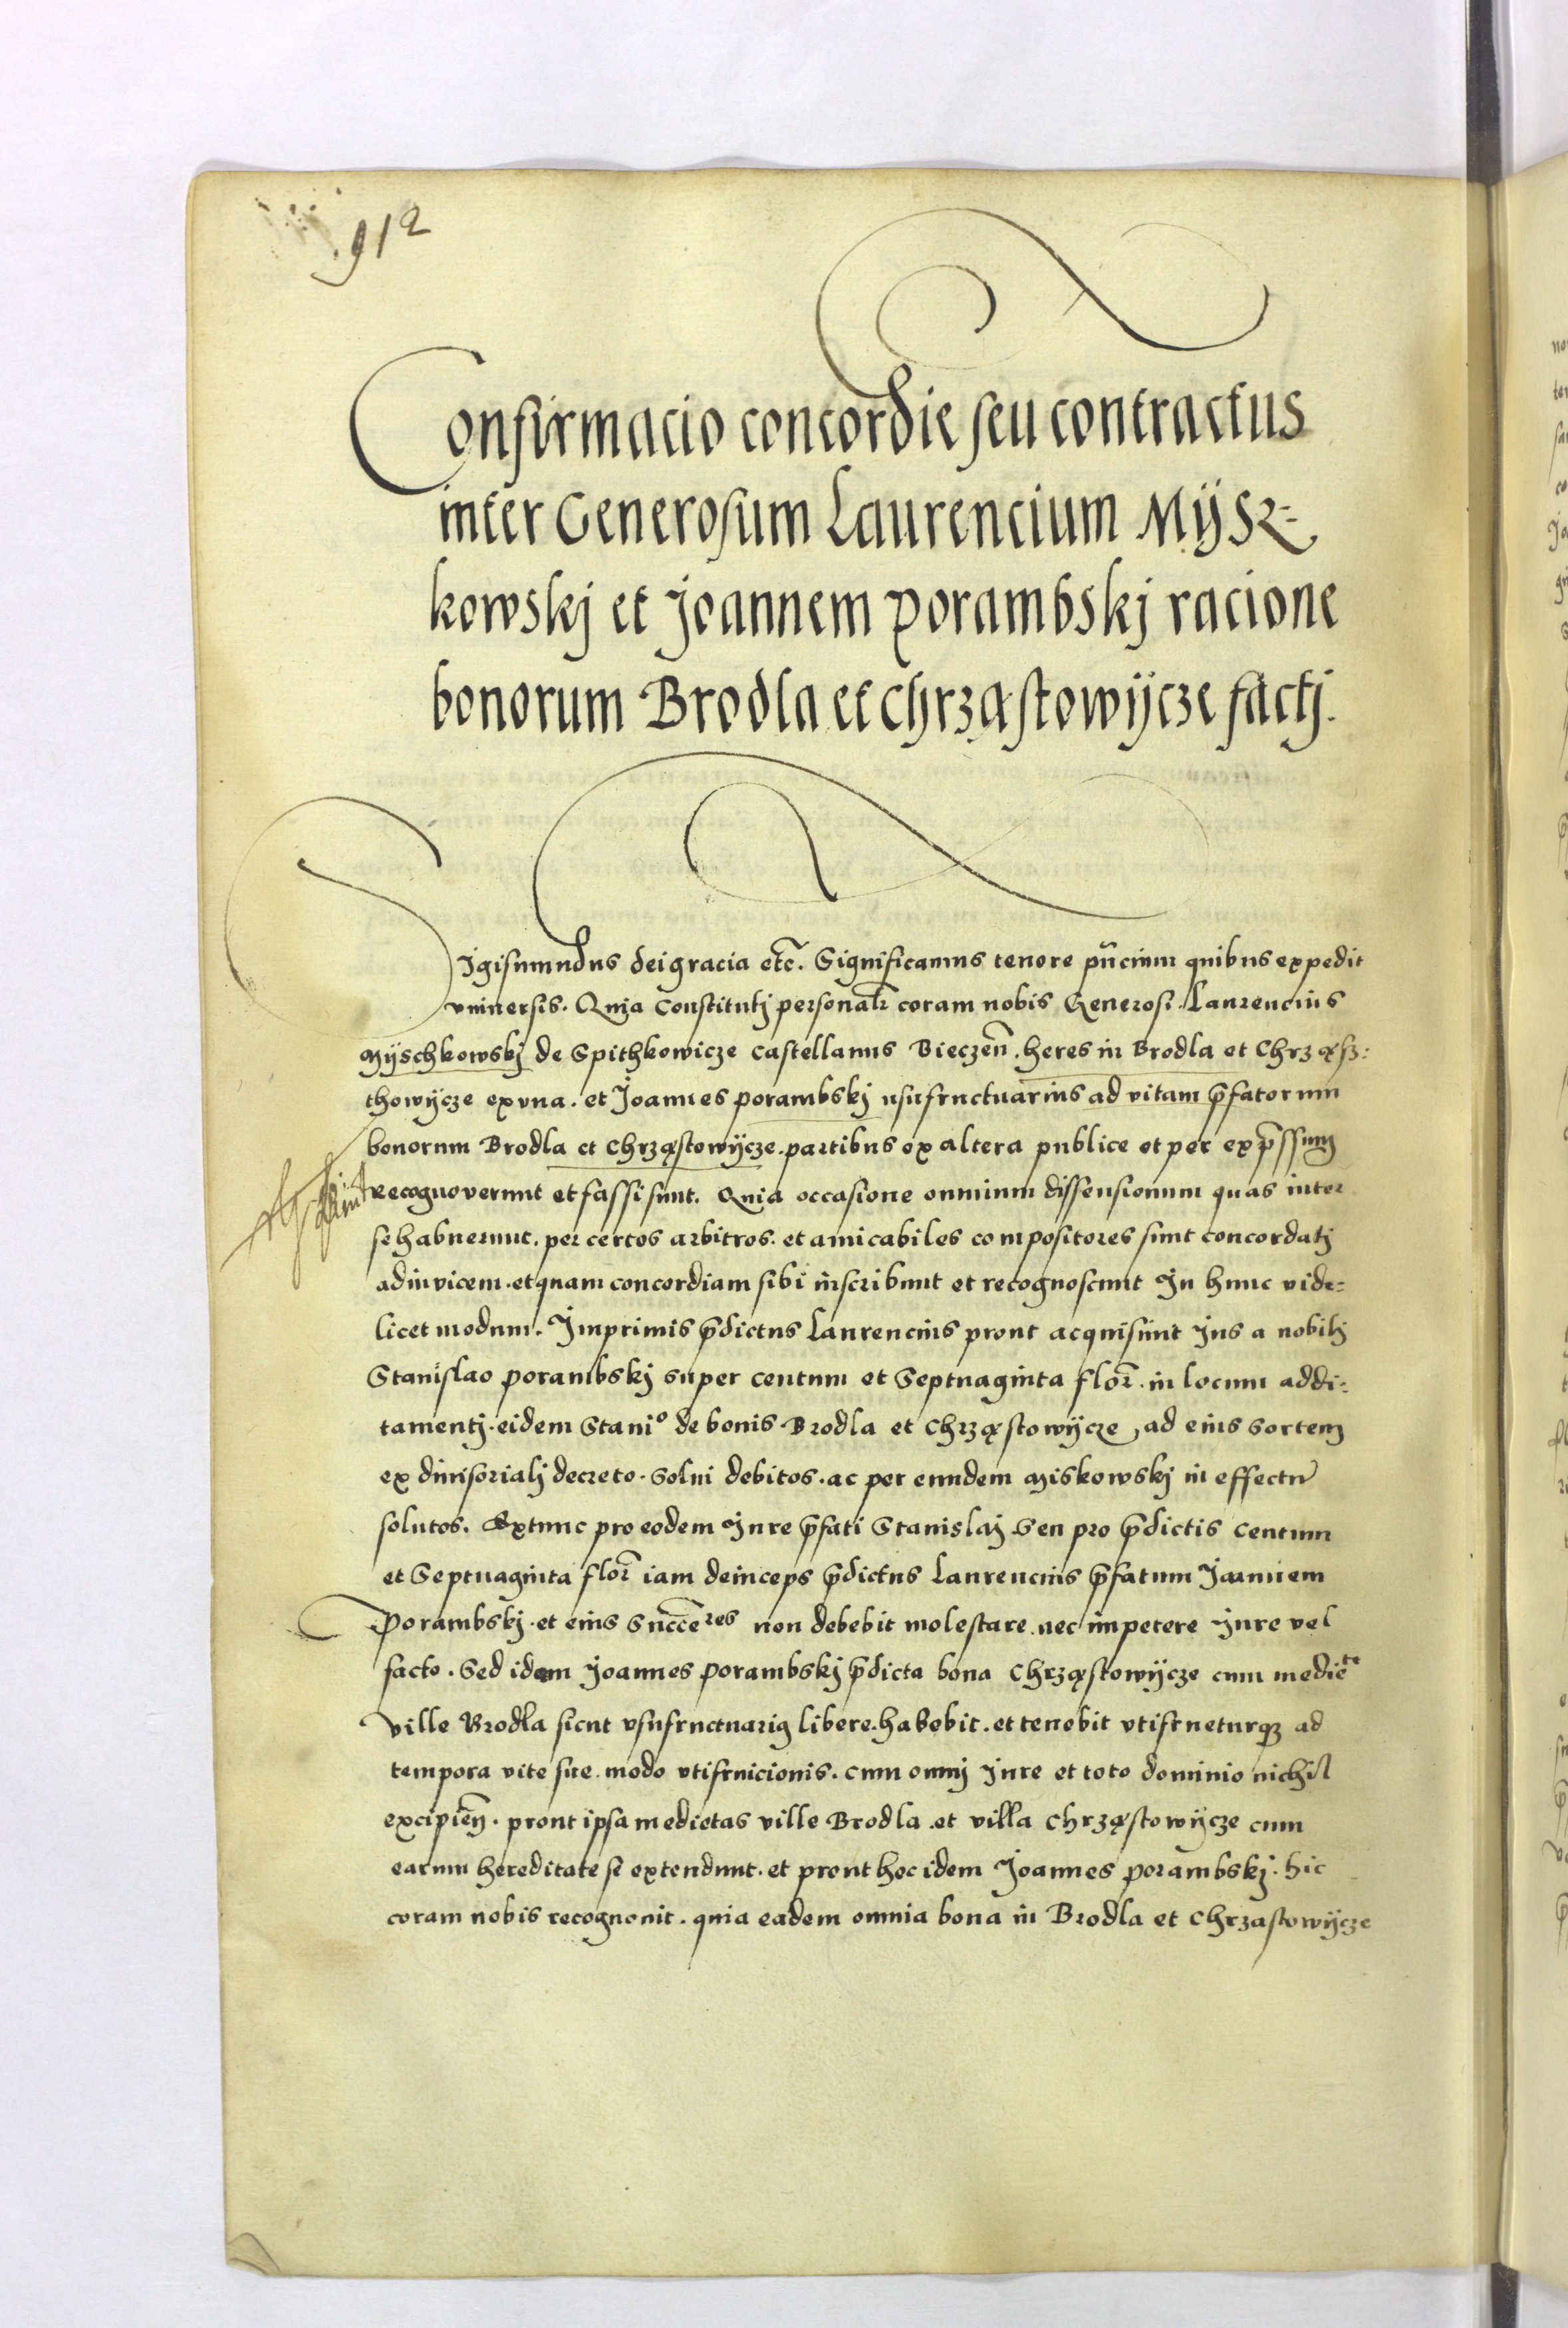 912
Confirmacio concordie seu contractus
inter Generosum Laurencium Mÿsz-
kowskj et Joannem porambskj racione
bonorum Brodla et Chrząstowÿcze factj.
Sigismundus dei gracia etc̃. Significamus tenore pñcium quibus expedit
vniversis. Quia Constitutj personalr̃ coram nobis Generosi. Laurencius
Mÿschkowskj de Spithkowicze Castellanus Bieczeñ. heres in Brodla et Chrząsz:
thowÿcze ex vna. et Joannes porambskj usufructuarius ad vitam p̃fatorum
bonorum Brodla et Chrząstowÿcze. partibus ex altera publice et per exp̃ssum
recognoverunt et fassi sunt. Quia occasione omnium dissensionum quas inter
se habuerunt. per certos arbitros. et amicabiles compositores sunt concordatj
adinvicem. et quam concordiam sibi inscribunt et recognoscunt In hunc vide-
licet modum. Imprimis p̃dictus Laurencius prout acquisiuit Jus a nobilj
Stanislao porambskj super centum et Septuaginta flor̃. in locum addi-
tamentj. eidem Staniᵒ de bonis Brodla et Chrząstowÿcze, ad eius sortem
ex diuisorialj decreto. Solui debitos. ac per eundem Miskowskj in effectu
solutos. Extunc pro eodem Jure p̃fati Stanislaj Seu pro p̃dictis Centum
et Septuaginta flor̃ iam deinceps p̃dictus Laurencius p̃fatum Joannem
Porambskj. et eius Succeˢʳᵉˢ non debebit molestare. nec impetere Jure vel
facto. Sed idem Joannes porambskj p̃dicta bona Chrząstowÿcze cum medieᵗᵉ
ville Brodla sicut vsufructuariꝰ libere. habebit. et tenebit vtifrueturqꝫ ad
tempora vite sue. modo vtifruicionis. cum omnj Jure et toto dominio nichil
excipieñ. prout ipsa medietas ville Brodla. et villa Chrząstowÿcze cum
earum hereditate se extendunt. et prout hoc idem Joannes porambskj. hic
coram nobis recognouit. quia eadem omnia bona in Brodla et Chrzastowÿcze